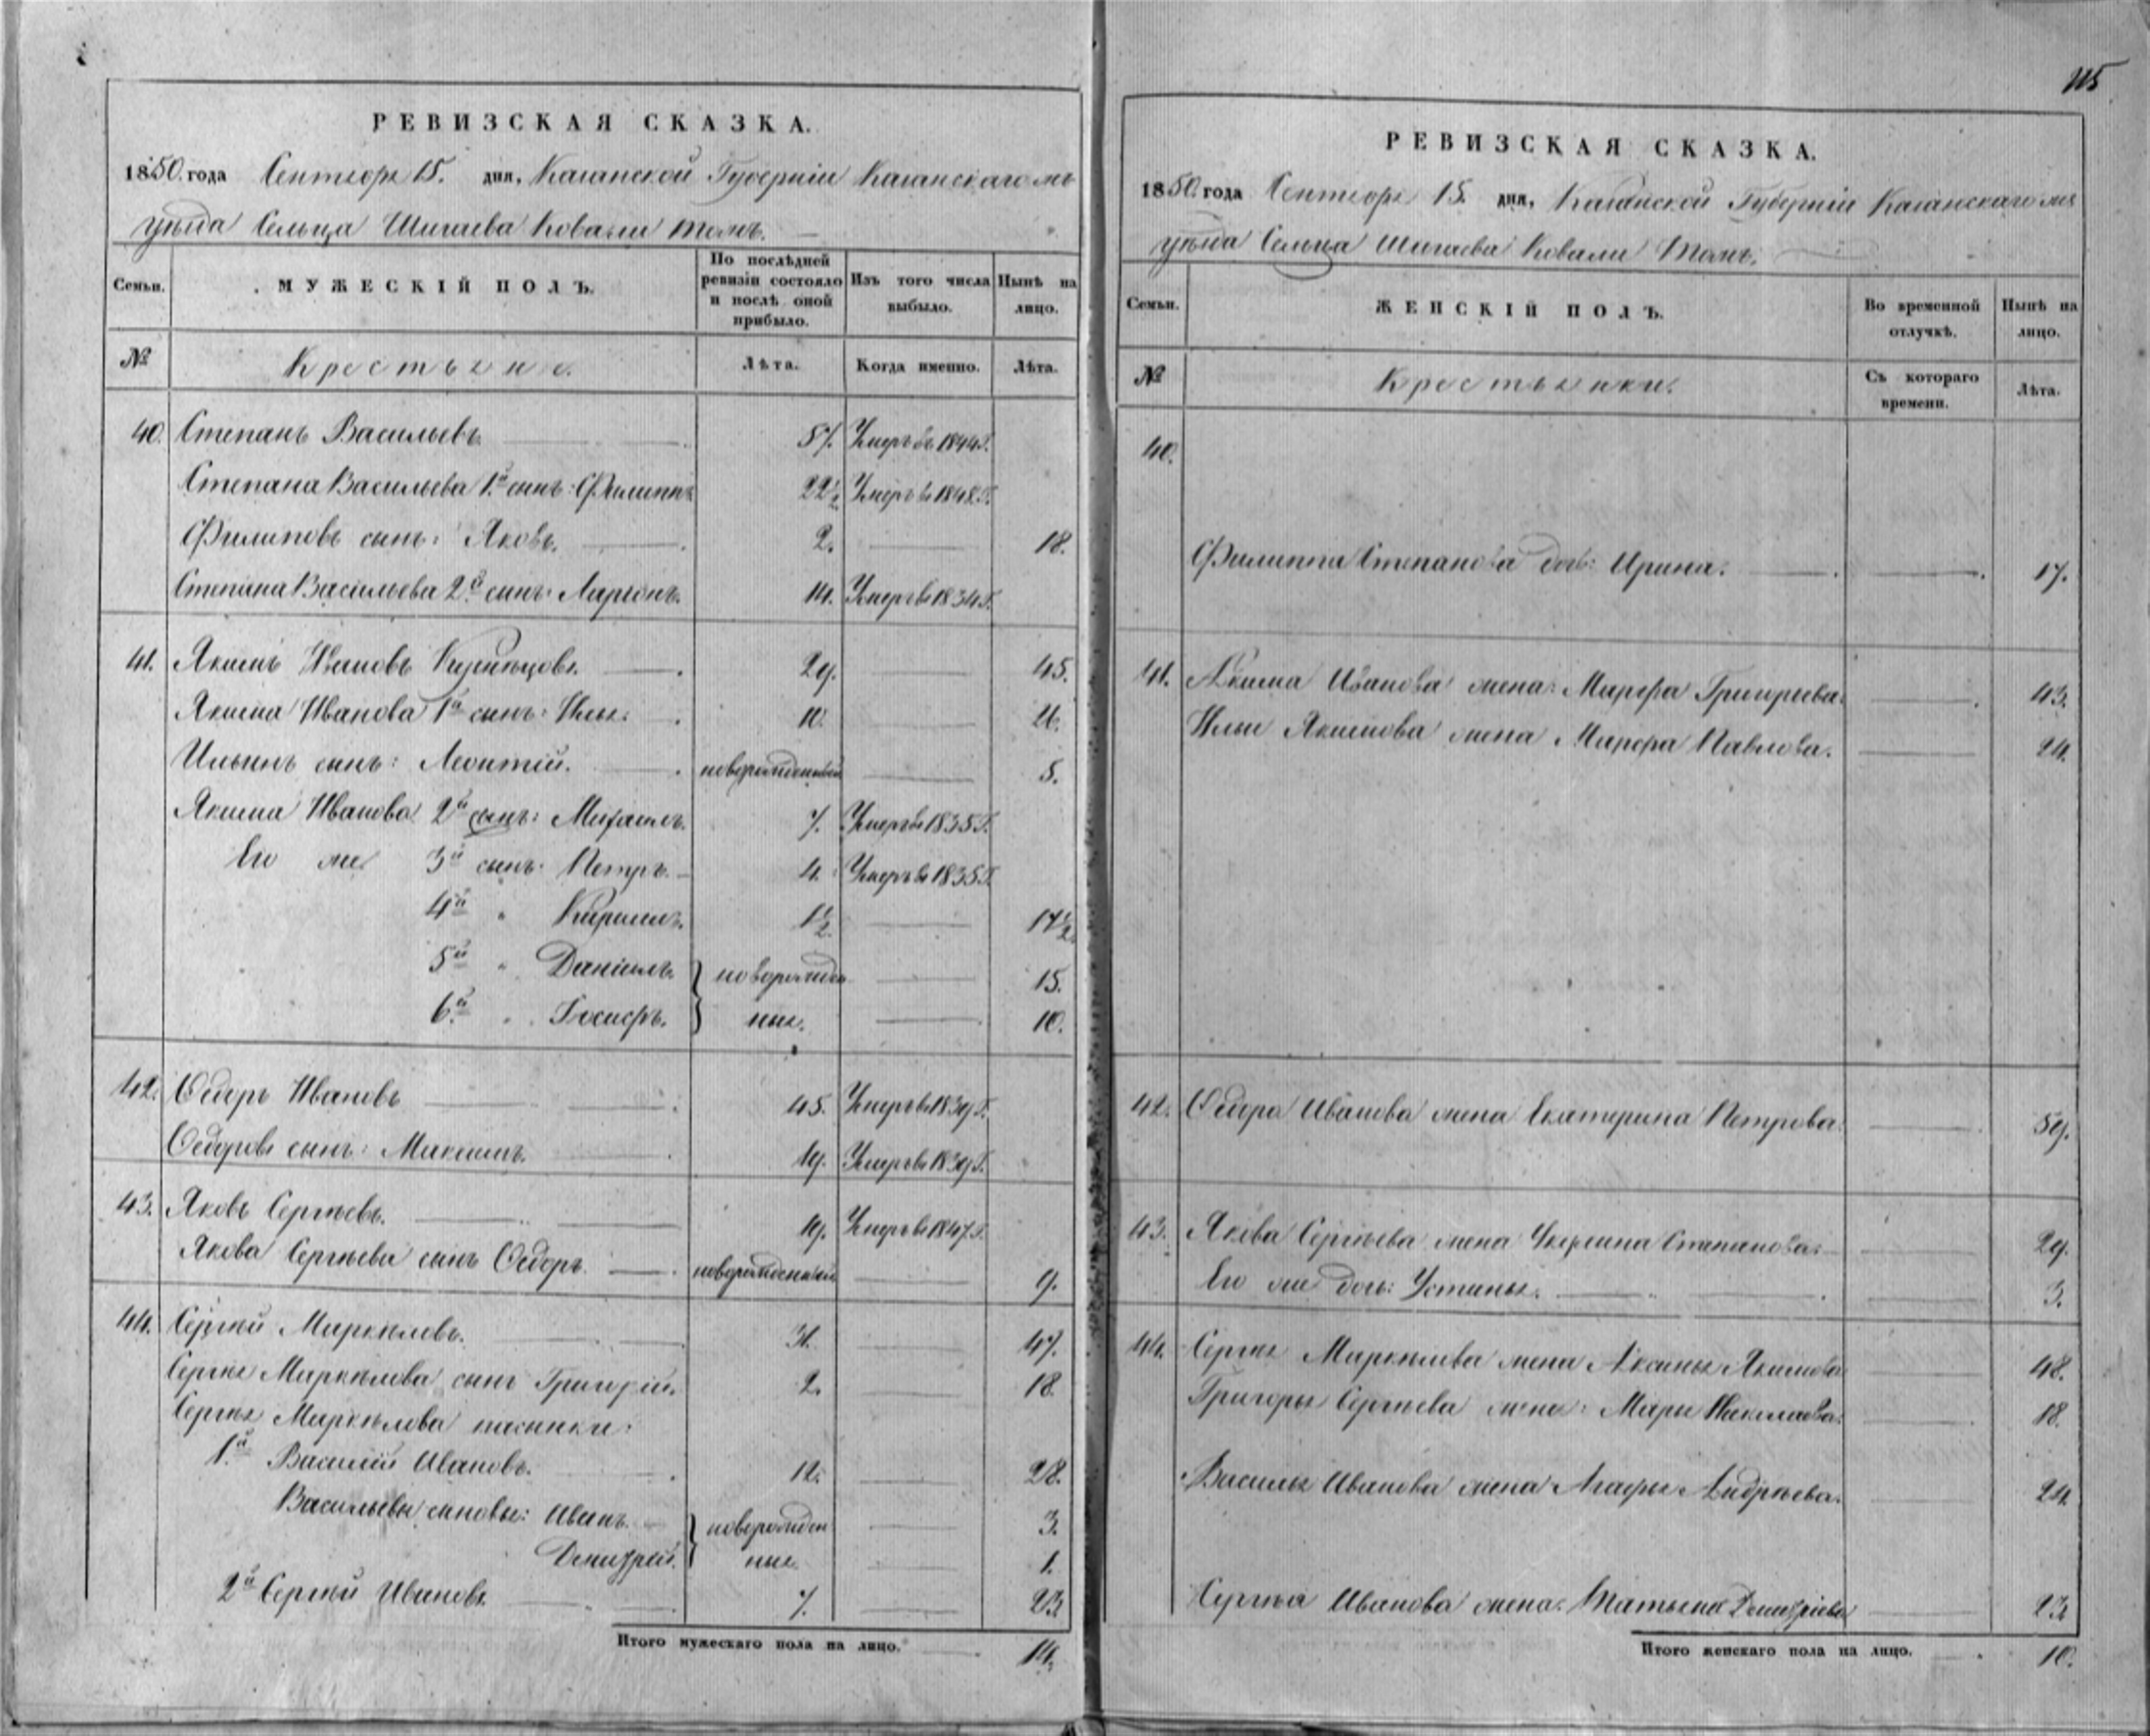 РЕВИЗСКАЯ СКАЗКА.
1850 года Сентября 15. дня, Казанской Губерніи Казанскаго
уѣзда Сельца Шигаева Ковали тожъ.
Семьи. МУЖЕСКІЙ ПОЛЪ. По послѣдней ревизіи состояло и послѣ оной прибыло. Изъ того числа выбыло. Нынѣ на лицо.
№ Крестьяне. Лѣта. Когда именно. Лѣта.
40. Степанъ Васильевъ 57. Умеръ въ 1844 Г.
Степана Васильева 1й сынъ: Филиппъ 22½ Умеръ въ 1848 Г.
Филиповъ сынъ: Яковъ. 2. 18.
Степана Васильева 2й сынъ: Ларіонъ. 14. Умеръ въ 1834 Г.
41. Якимъ Ивановъ Кузнецовъ. 29. 45.
Якима Иванова 1й сынъ: Илья. 10. 26.
Ильинъ сынъ: Леонтій. новорожденный 5.
Якима Иванова 2й сынъ: Михаилъ. 7. Умеръ въ 1835 Г.
Его же 3й сынъ: Петръ. 4. Умеръ въ 1835 Г.
4й " Кирилъ. 1½ 17½
5й " Даніилъ. новорожден 15.
6й " Іосифъ. ные. 10.
42. Ѳедоръ Ивановъ 45. Умеръ въ 1839 Г.
Ѳедоровъ сынъ: Максимъ. 19. Умеръ въ 1839 Г.
43. Яковъ Сергѣевъ. 19. Умеръ въ 1847 Г.
Якова Сергѣева сынъ Ѳедоръ. новорожденный 9.
44. Сергѣй Маркѣловъ. 31. 47.
Сергѣя Маркѣлова сынъ Григорій. 2. 18.
Сергѣя Маркѣлова пасынки:
1й Василій Ивановъ. 12. 28.
Васильевы сыновья: Иванъ. новорожден 3.
Димитрій. ные. 1.
2й Сергѣй Ивановъ. 7. 23.
Итого мужескаго пола на лицо. 14.
115
РЕВИЗСКАЯ СКАЗКА.
1850 года Сентября 15. дня, Казанской Губерніи Казанскаго
уѣзда Сельца Шигаева Ковали тожъ.
Семьи. ЖЕНСКІЙ ПОЛЪ. Во временной отлучкѣ. Нынѣ на лицо.
№ Крестьянки. Съ котораго времени. Лѣта.
40.
Филиппа Степанова дочь: Ирина. 17.
41. Якима Иванова жена: Марфа Григорьева. 43.
Ильи Якимова жена Марфа Павлова. 24.
42. Ѳедора Иванова жена Екатерина Петрова. 59.
43. Якова Сергѣева жена Степанова. 29.
Его же дочь: Устинья. 3.
44. Сергѣя Маркѣлова жена Аксинья Якимова 48.
Григорья Сергѣева жена: Марья Николаева. 18.
Василья Иванова жена Агафья Андрѣева. 24.
Сергѣя Иванова жена: Татьяна Димитріева 23.
Итого женскаго пола на лицо. 10.